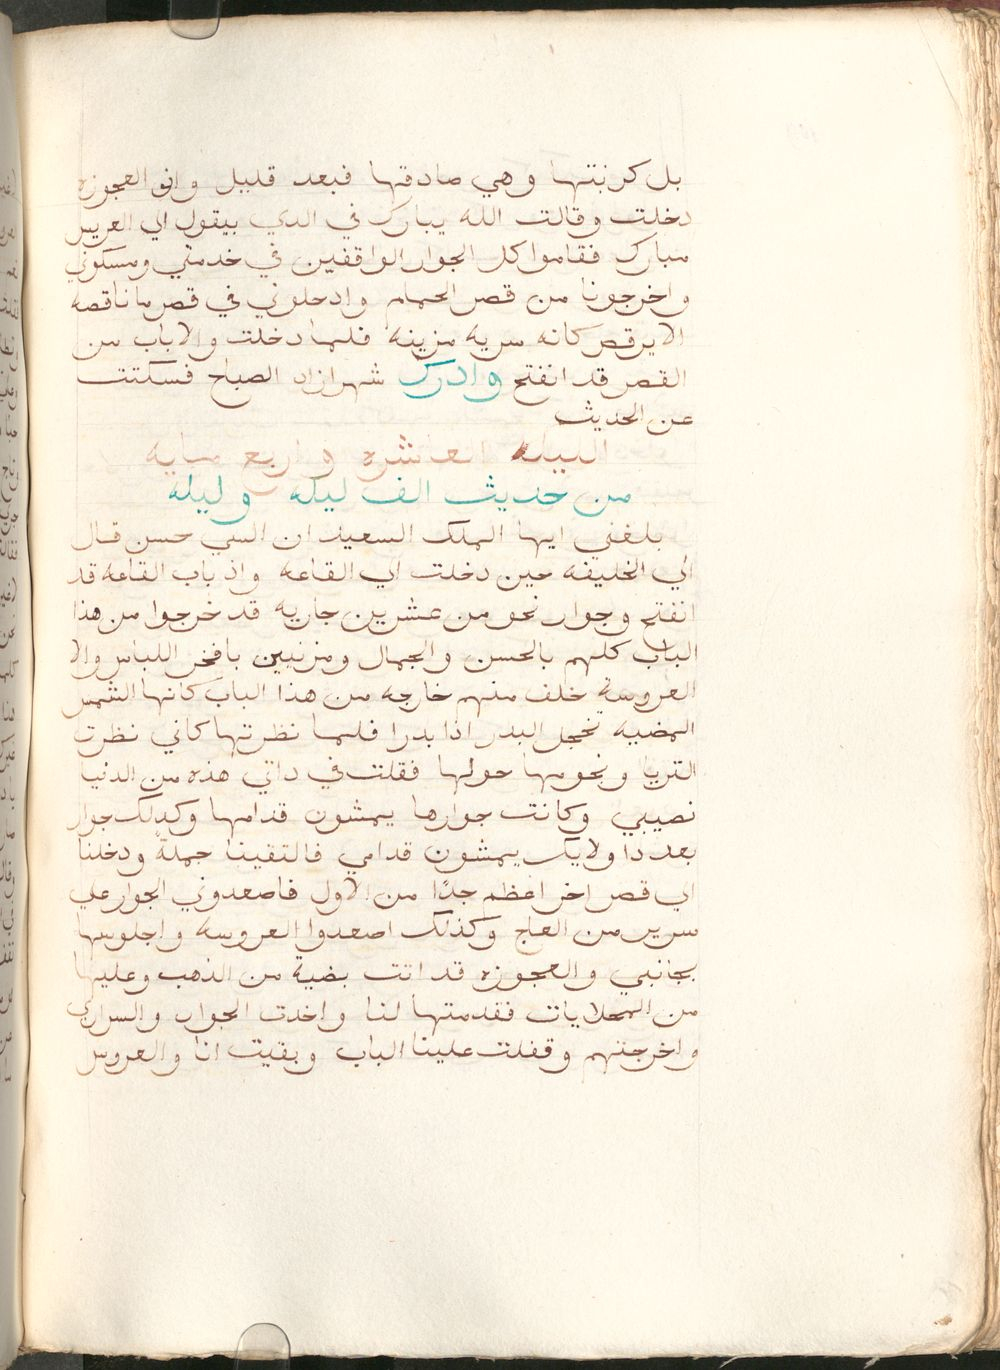 بل كرنبتها وهي صادقها فبعد قليل وان العجوزه
دخلت وقالت الله يبارك في الدي بيقول الي العريس
مبارك فقاموا كل الجوار الواقفين في خدمتي ومسكوني
واخرجونا من قصر الحمام وادخلوني في قصر ما ناقصه
الا يرقص كانه سريه مزينه فلما دخلت والا باب من
القصر قد انفتح وادرك شهرازاد الصباح فسكتت
عن الحديث
الليله العاشره واربع مايه
من حديث الف ليله وليله
بلغني ايها الملك السعيد ان السي حسن قال
الي الخليفه حين دخلت الي القاعه واذ باب القاعه قد
انفتح وجوار نحو من عشرين جاريه قد خرجوا من هذا
الباب كلهم بالحسن والجمال ومزنيين بافخر اللباس والا
العروسة خلف منهم خارجه من هذا الباب كانها الشمس
المضيه تخجل البدر اذا بدرا فلما نظرتها كاني نظرت
التريا ونجومها حولها فقلت في داتي هذه من الدنيا
نصيبي وكانت جوارها يمشون قدامها وكدلك جوار
بعد دا ولايك يمشون قدامي فالتقينا جملةً ودخلنا
الي قصر اخر اعظم جدًا من الاول فاصعدوني الجوار علي
سرير من العاج وكذلك اصعدوا العروسه واجلوسها
بجانبي والعجوزه قد اتت بضية من الذهب وعليها
من المحلايات فقدمتها لنا واخدت الجوار والسراري
واخرجتهم وقفلت علينا الباب وبقيت انا والعروس